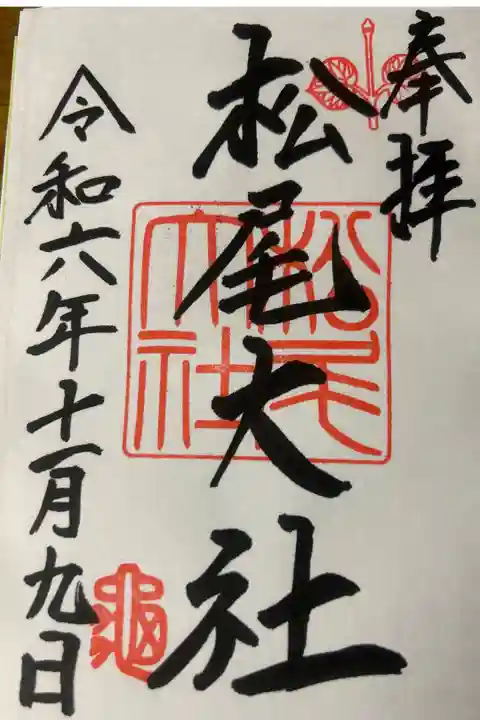 奉拝
松尾大社
松尾大社
令和六年十一月九日
亀